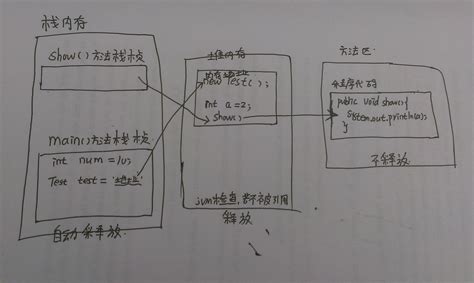 栈内存
show()方法栈帧
main()方法栈帧
int num =10;
Test test =
自动释放
堆内存
new Test();
int a =2;
show()
释放
方法区
程序代码
public void show(){
System.out.println(a);
}
不释放